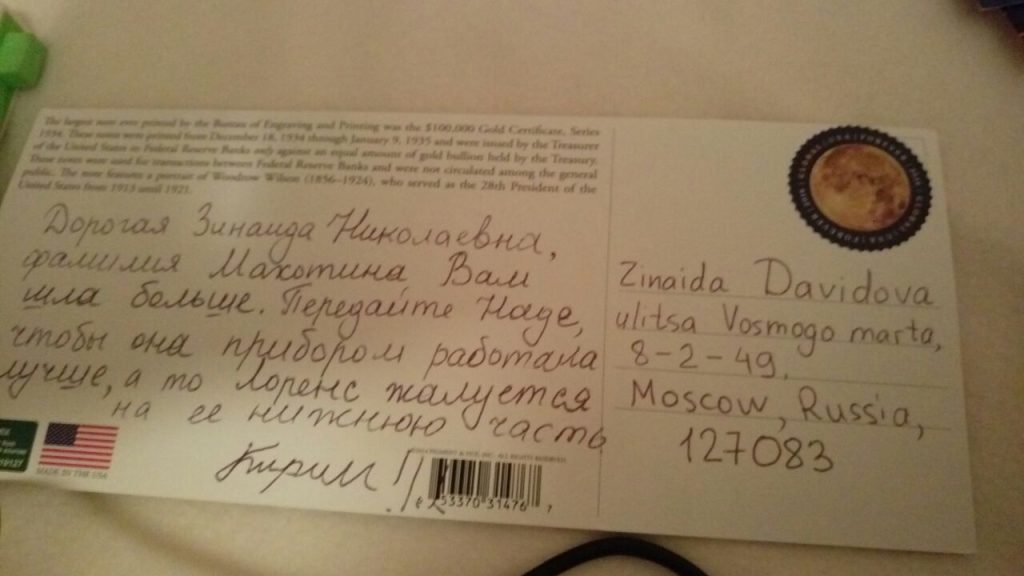 The largest note ever printed by the Bureau of Engraving and Printing was the $100,000 Gold Certificate, Series
1934. These notes were printed from December 18, 1934 through January 9, 1935 and were issued by the Treasurer
of the United States to Federal Reserve Banks only against an equal amount of gold bullion held by the Treasury.
These notes were used for transactions between Federal Reserve Banks and were not circulated among the general
public. The note features a portrait of Woodrow Wilson (1856–1924), who served as the 28th President of the
United States from 1913 until 1921.
Дорогая Зинаида Николаевна,
фамилия Махотина Вам
шла больше. Передайте Наде,
чтобы она прибором работала
лучше, а то Лоренс жалуется
на ее нижнюю часть
Кирилл
MADE IN THE USA
ALL RIGHTS RESERVED
53370 31476 7
Zinaida Davidova
ulitsa Vosmogo marta,
8-2-49,
Moscow, Russia,
127083